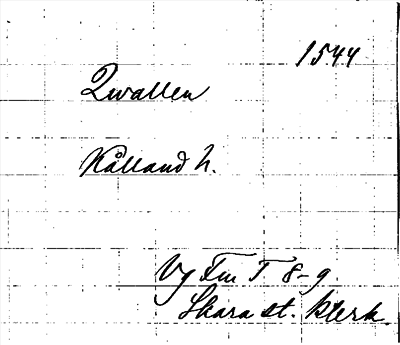 1544
Qvallen
Kålland h.
Vg Fm T 8-9
Skara st. kterk